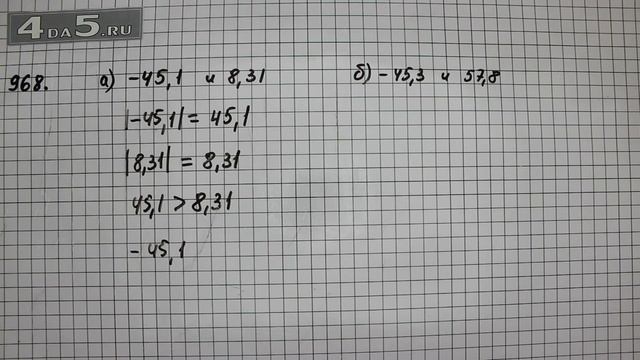 4DA5.RU
968. а) -45,1 и 8,31 б) -45,3 и 57,8
|-45,1| = 45,1
|8,31| = 8,31
45,1 > 8,31
-45,1